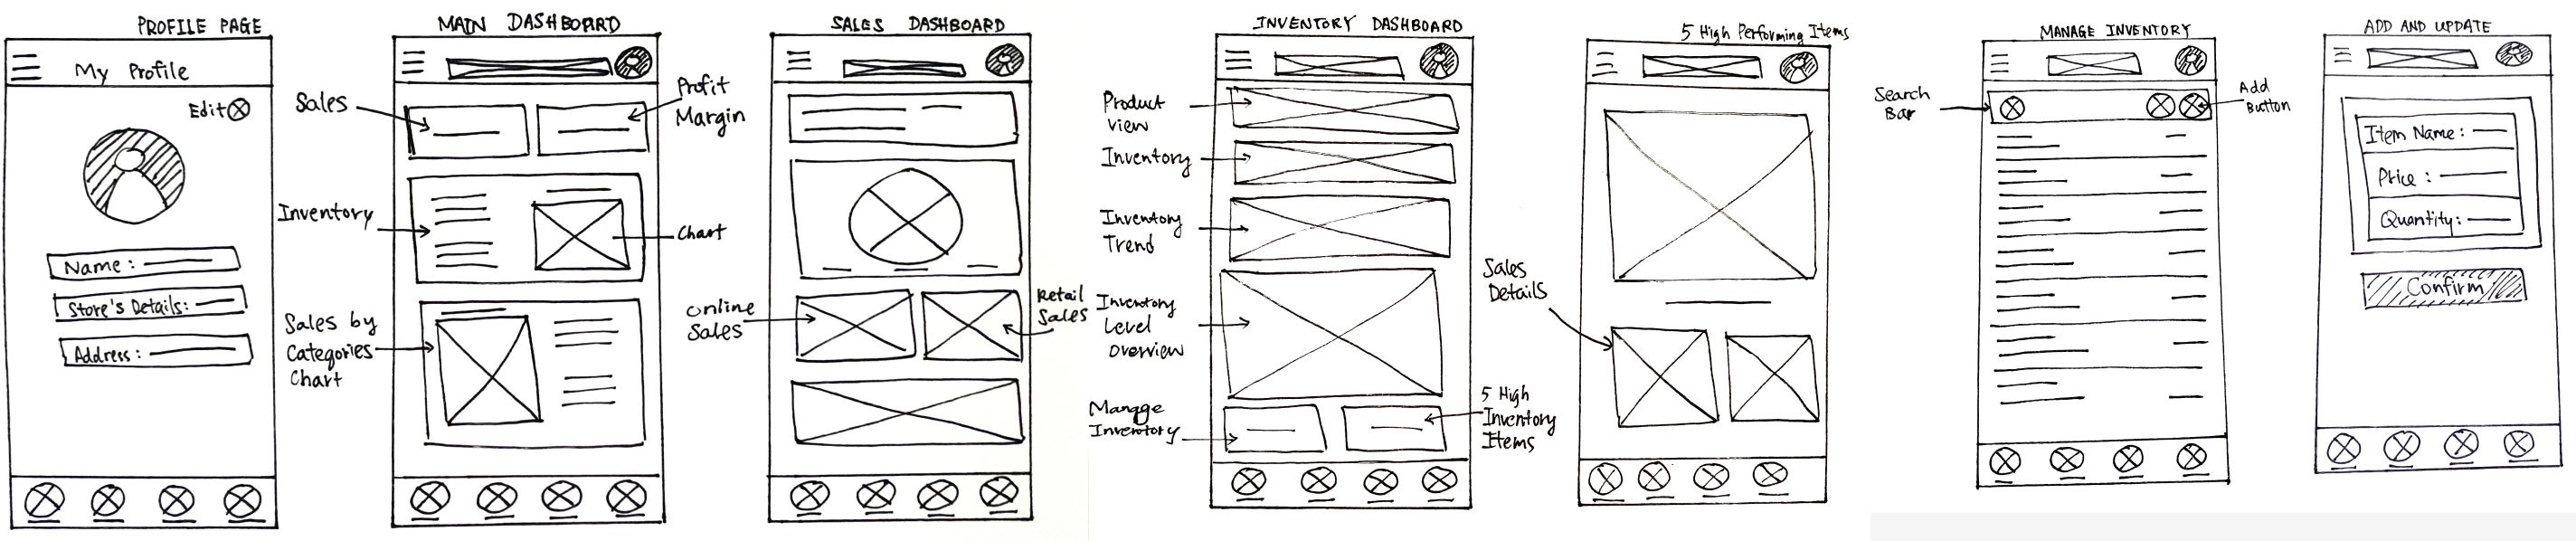 PROFILE PAGE
My Profile
Edit
Name:
Store's Details:
Address:
MAIN DASHBOARD
Sales
Profit
Margin
Inventory
Chart
Sales by
Categories
Chart
SALES DASHBOARD
Online
Sales
Retail
Sales
INVENTORY DASHBOARD
Product
View
Inventory
Inventory
Trend
Inventory
Level
Overview
Manage
Inventory
5 High
Inventory
Items
5 High Performing Items
Sales
Details
MANAGE INVENTORY
Search
Bar
Add
Button
ADD AND UPDATE
Item Name:
Price:
Quantity:
Confirm